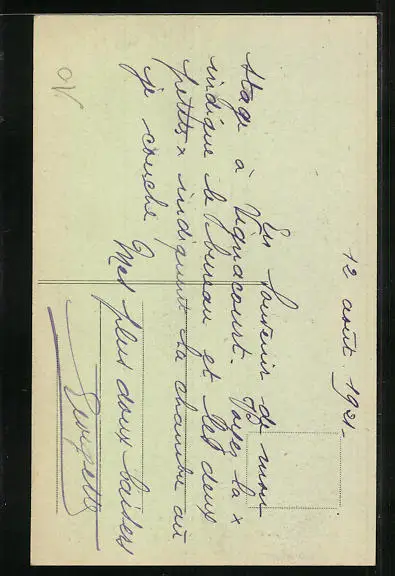 12 août 1921-
En souvenir de mon
stage à Vignacourt. la x
indique le bureau et les deux
petites x indiquent la chambre où
je couche
Mes plus doux baisers
Georgette